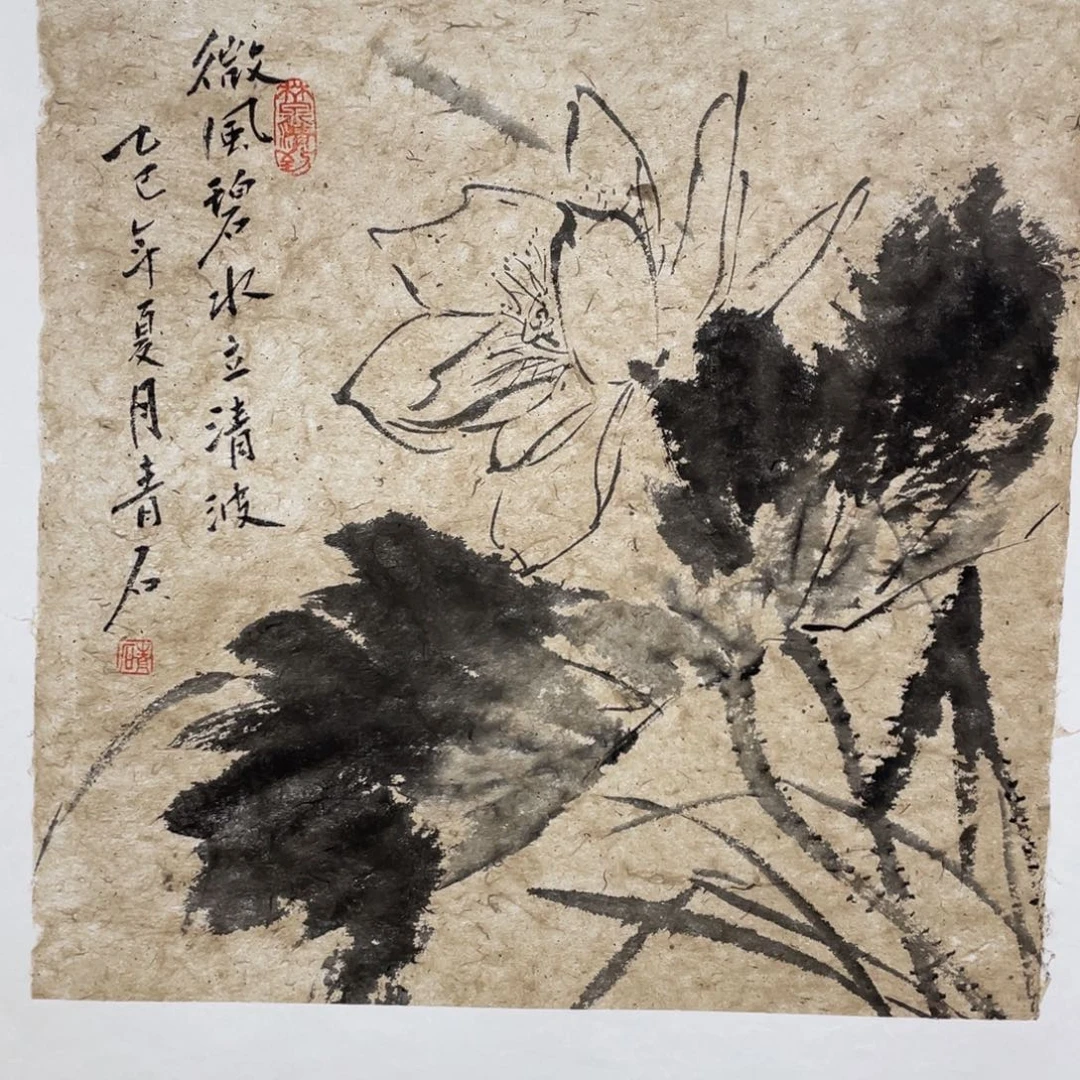 微風碧水立清波
乙巳年夏月青石
青石